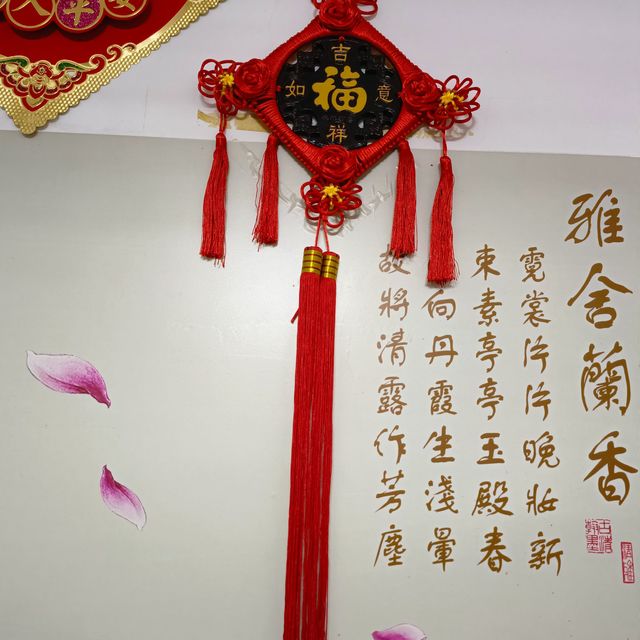 吉
如福意
祥
雅舍蘭香
霓裳片片晚妝新
束素亭亭玉殿春
向丹霞生淺暈
故將清露作芳塵